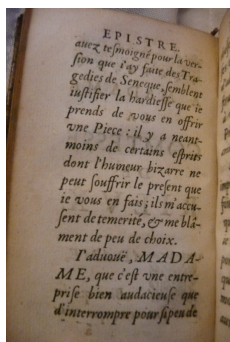 EPISTRE.
auez tesmoigné pour la ver-
sion que i'ay faite des Tra-
gedies de Seneque, semblent
iustifier la hardiesse que ie
prends de vous en offrir
vne Piece : il y a neant-
moins de certains esprits
dont l'humeur bizarre ne
peut souffrir le present que
ie vous en fais ; ils m'accu-
sent de temerité, & me blâ-
ment de peu de choix.
I'aduouë, MADA-
ME, que c'est vne entre-
prise bien audacieuse que
d'interrompre pour si peu de